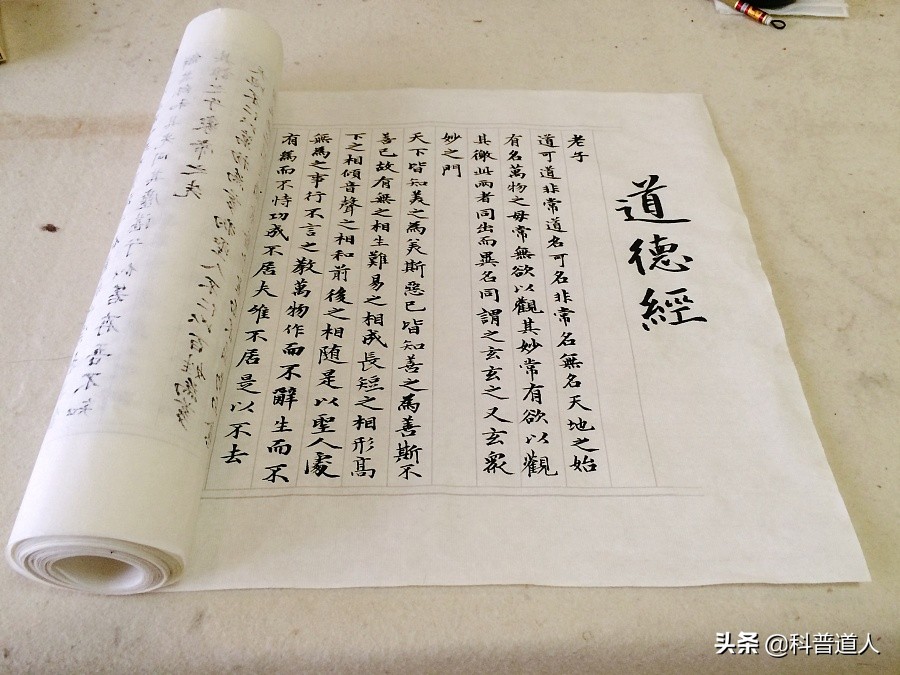 道德經
老子
道可道非常道名可名非常名無名天地之始
有名萬物之母常無欲以觀其妙常有欲以觀
其徼此两者同出而異名同謂之玄玄之又玄眾
妙之門
天下皆知美之為美斯惡已皆知善之為善斯不
善已故有無之相生難易之相成長短之相形高
下之相傾音聲之相和前後之相随是以聖人處
無為之事行不言之教萬物作而不辭生而不
有為而不恃功成不居夫唯不居是以不去
之子象帝之先
头条 @科普道人